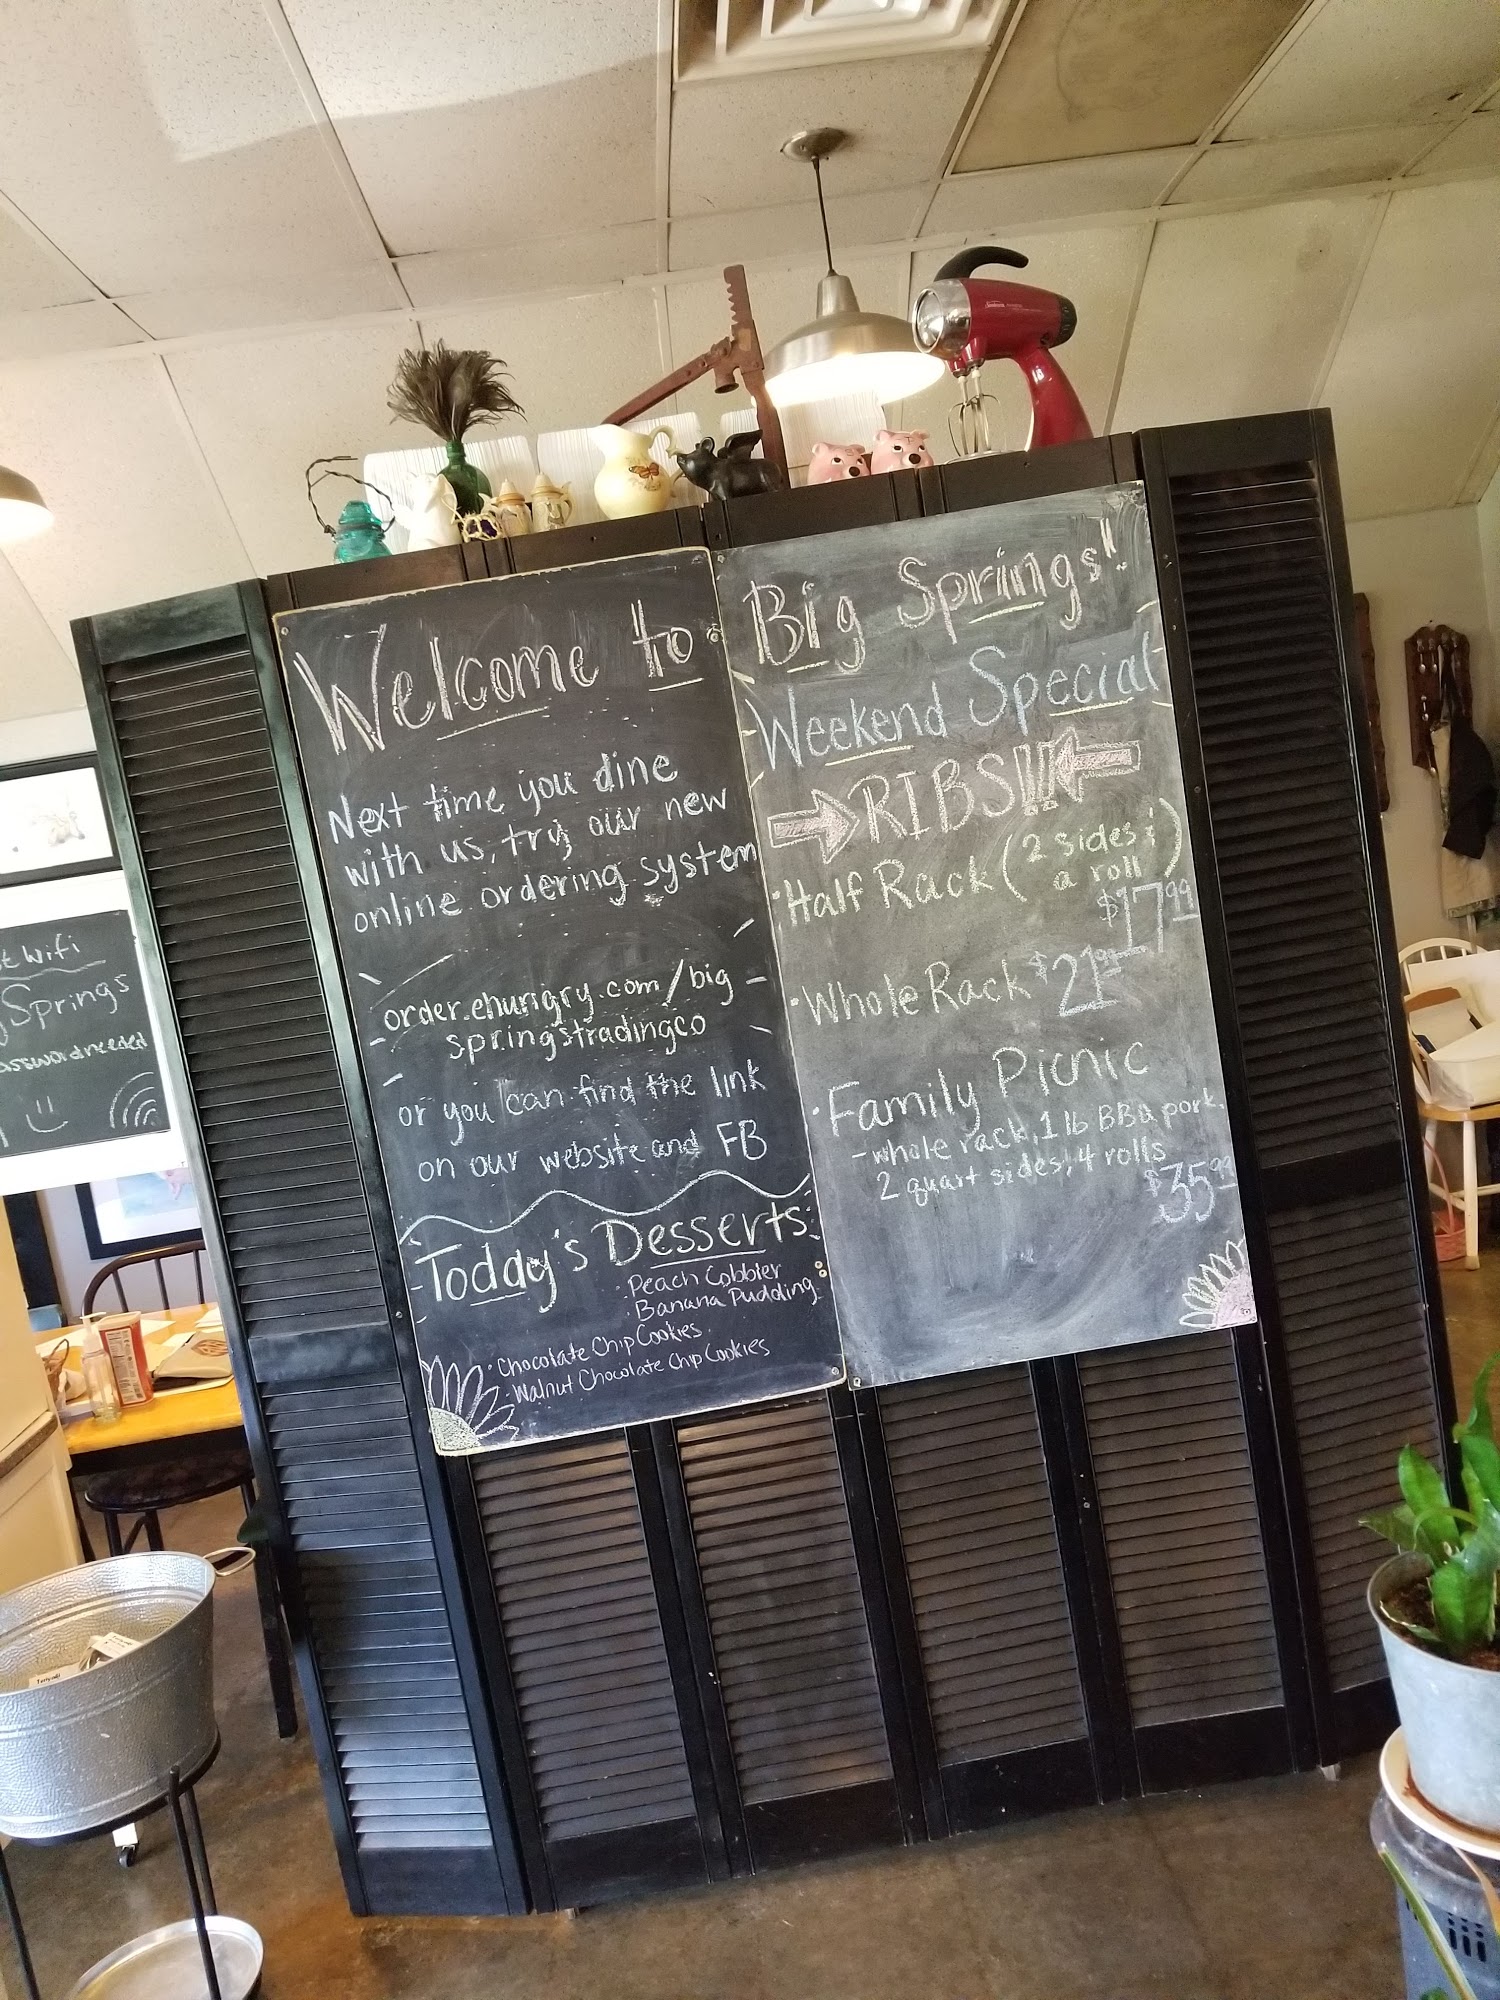 Welcome to
Next time you dine
with us, try our new
online ordering system
order.ehungry.com/big
springstradingco
or you can find the link
on our website and FB
Today's Desserts:
· Peach Cobbler
· Banana Pudding
· Chocolate Chip Cookies
· Walnut Chocolate Chip Cookies
Big Springs!
Weekend Special
RIBS!!!
· Half Rack (2 sides &
a roll)
$17.99
· Whole Rack $21.99
· Family Picnic
- whole rack, 1 lb BBQ pork,
2 quart sides, 4 rolls
$35.99
Wifi
Springs
Sunbeam